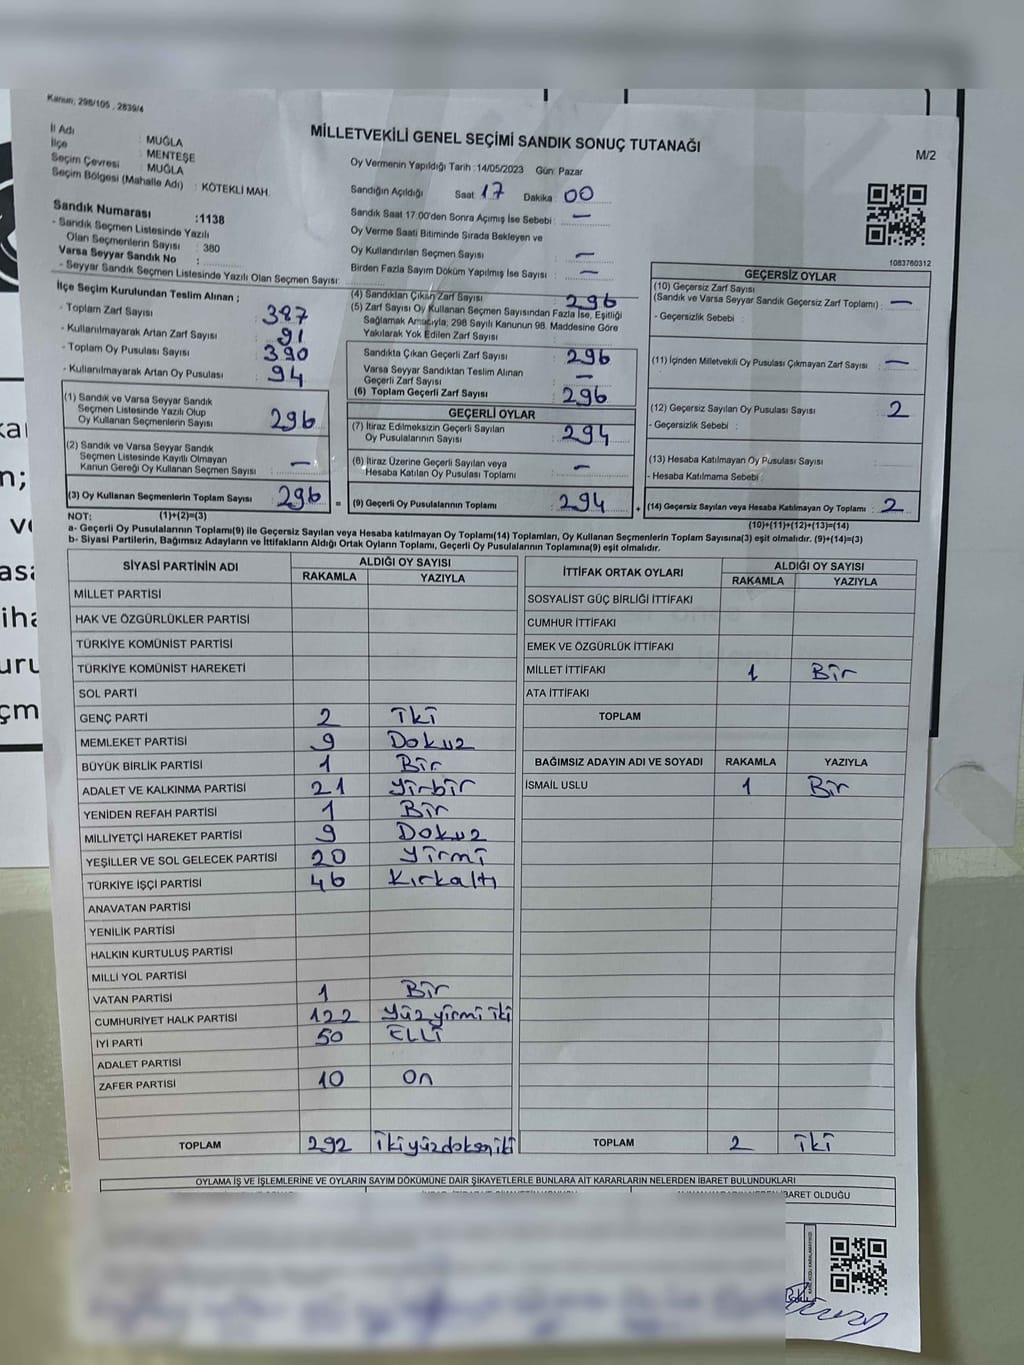 Kanun, 298/105 . 2839/4
MİLLETVEKİLİ GENEL SEÇİMİ SANDIK SONUÇ TUTANAĞI
M/2
İl Adı : MUĞLA
İlçe : MENTEŞE
Seçim Çevresi : MUĞLA
Seçim Bölgesi (Mahalle Adı) : KÖTEKLİ MAH.
Sandık Numarası :1138
- Sandık Seçmen Listesinde Yazılı
Olan Seçmenlerin Sayısı : 380
Varsa Seyyar Sandık No :
- Seyyar Sandık Seçmen Listesinde Yazılı Olan Seçmen Sayısı:
Oy Vermenin Yapıldığı Tarih :14/05/2023 Gün: Pazar
Sandığın Açıldığı Saat 17 Dakika 00
Sandık Saat 17:00'den Sonra Açımış İse Sebebi : –
Oy Verme Saati Bitiminde Sırada Bekleyen ve
Oy Kullandırılan Seçmen Sayısı –
Birden Fazla Sayım Döküm Yapılmış İse Sayısı –
1083760312
İlçe Seçim Kurulundan Teslim Alınan ;
- Toplam Zarf Sayısı : 387
- Kullanılmayarak Artan Zarf Sayısı : 91
- Toplam Oy Pusulası Sayısı : 390
- Kullanılmayarak Artan Oy Pusulası : 94
(1) Sandık ve Varsa Seyyar Sandık
Seçmen Listesinde Yazılı Olup
Oy Kullanan Seçmenlerin Sayısı : 296
(2) Sandık ve Varsa Seyyar Sandık
Seçmen Listesinde Kayıtlı Olmayan
Kanun Gereği Oy Kullanan Seçmen Sayısı : –
(3) Oy Kullanan Seçmenlerin Toplam Sayısı : 296
(4) Sandıktan Çıkan Zarf Sayısı : 296
(5) Zarf Sayısı Oy Kullanan Seçmen Sayısından Fazla İse, Eşitliği
Sağlamak Amacıyla, 298 Sayılı Kanunun 98. Maddesine Göre
Yakılarak Yok Edilen Zarf Sayısı :
Sandıkta Çıkan Geçerli Zarf Sayısı : 296
Varsa Seyyar Sandıktan Teslim Alınan
Geçerli Zarf Sayısı : –
(6) Toplam Geçerli Zarf Sayısı : 296
GEÇERLİ OYLAR
(7) İtiraz Edilmeksizin Geçerli Sayılan
Oy Pusulalarının Sayısı : 294
(8) İtiraz Üzerine Geçerli Sayılan veya
Hesaba Katılan Oy Pusulası Toplamı : –
= (9) Geçerli Oy Pusulalarının Toplamı : 294
GEÇERSİZ OYLAR
(10) Geçersiz Zarf Sayısı
(Sandık ve Varsa Seyyar Sandık Geçersiz Zarf Toplamı) : –
- Geçersizlik Sebebi :
(11) İçinden Milletvekili Oy Pusulası Çıkmayan Zarf Sayısı : –
(12) Geçersiz Sayılan Oy Pusulası Sayısı : 2
- Geçersizlik Sebebi :
(13) Hesaba Katılmayan Oy Pusulası Sayısı :
- Hesaba Katılmama Sebebi :
+ (14) Geçersiz Sayılan veya Hesaba Katılmayan Oy Toplamı : 2
NOT: (1)+(2)=(3) (10)+(11)+(12)+(13)=(14)
a- Geçerli Oy Pusulalarının Toplamı(9) ile Geçersiz Sayılan veya Hesaba katılmayan Oy Toplamı(14) Toplamları, Oy Kullanan Seçmenlerin Toplam Sayısına(3) eşit olmalıdır. (9)+(14)=(3)
b- Siyasi Partilerin, Bağımsız Adayların ve İttifakların Aldığı Ortak Oyların Toplamı, Geçerli Oy Pusulalarının Toplamına(9) eşit olmalıdır.
SİYASİ PARTİNİN ADI ALDIĞI OY SAYISI
RAKAMLA YAZIYLA
MİLLET PARTİSİ
HAK VE ÖZGÜRLÜKLER PARTİSİ
TÜRKİYE KOMÜNİST PARTİSİ
TÜRKİYE KOMÜNİST HAREKETİ
SOL PARTİ
GENÇ PARTİ 2 iki
MEMLEKET PARTİSİ 9 Dokuz
BÜYÜK BİRLİK PARTİSİ 1 Bir
ADALET VE KALKINMA PARTİSİ 21 Yirbir
YENİDEN REFAH PARTİSİ 1 Bir
MİLLİYETÇİ HAREKET PARTİSİ 9 Dokuz
YEŞİLLER VE SOL GELECEK PARTİSİ 20 Yirmi
TÜRKİYE İŞÇİ PARTİSİ 46 Kırkaltı
ANAVATAN PARTİSİ
YENİLİK PARTİSİ
HALKIN KURTULUŞ PARTİSİ
MİLLİ YOL PARTİSİ
VATAN PARTİSİ 1 Bir
CUMHURİYET HALK PARTİSİ 122 Yüz yirmi iki
İYİ PARTİ 50 ELLİ
ADALET PARTİSİ
ZAFER PARTİSİ 10 On
TOPLAM 292 ikiyüzdoksaniki
İTTİFAK ORTAK OYLARI ALDIĞI OY SAYISI
RAKAMLA YAZIYLA
SOSYALİST GÜÇ BİRLİĞİ İTTİFAKI
CUMHUR İTTİFAKI
EMEK VE ÖZGÜRLÜK İTTİFAKI
MİLLET İTTİFAKI 1 Bir
ATA İTTİFAKI
TOPLAM
BAĞIMSIZ ADAYIN ADI VE SOYADI RAKAMLA YAZIYLA
İSMAİL USLU 1 Bir
TOPLAM 2 iki
OYLAMA İŞ VE İŞLEMLERİNE VE OYLARIN SAYIM DÖKÜMÜNE DAİR ŞİKAYETLERLE BUNLARA AİT KARARLARIN NELERDEN İBARET BULUNDUKLARI
BARET OLDUĞU